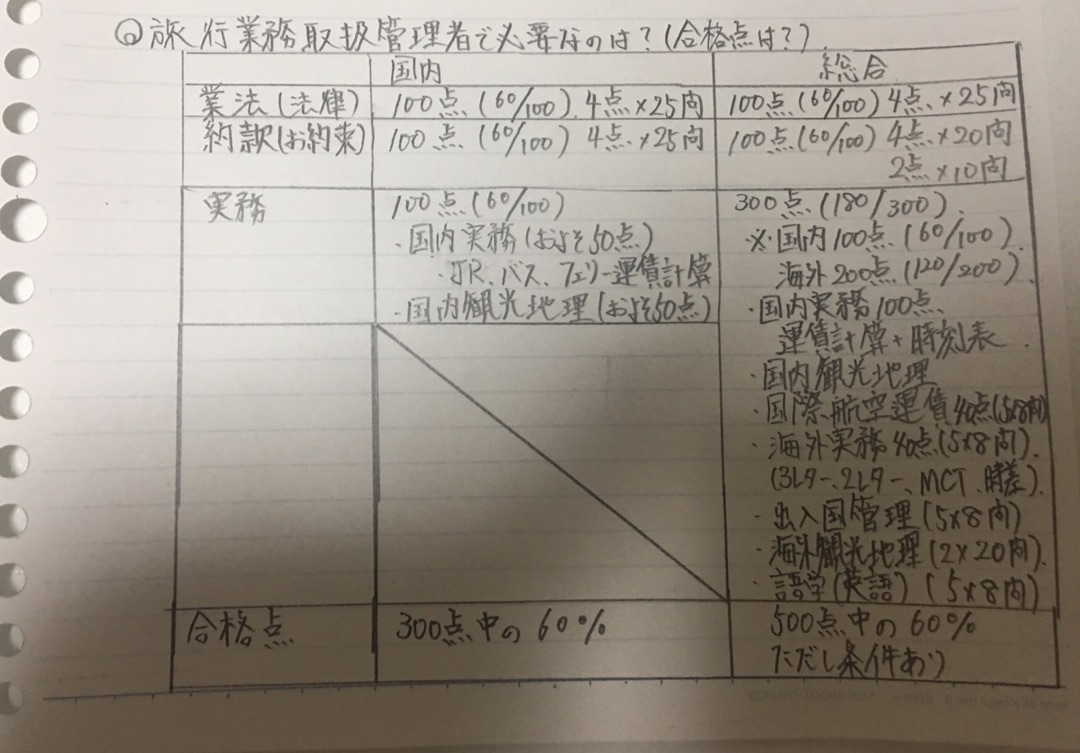 Q 旅行業務取扱管理者で必要なのは?(合格点は?)
国内 総合
業法(法律) 100点(60/100) 4点×25問 100点(60/100) 4点×25問
約款(お約束) 100点(60/100) 4点×25問 100点(60/100) 4点×20問
2点×10問
実務 100点(60/100) 300点(180/300)
・国内実務(およそ50点) ※国内100点(60/100)
・JR、バス、フェリー運賃計算 海外200点(120/200)
・国内観光地理(およそ50点) ・国内実務100点
運賃計算+時刻表
・国内観光地理
・国際航空運賃40点(5×8問)
・海外実務40点(5×8問)
(3レター、2レター、MCT、時差)
・出入国管理(5×8問)
・海外観光地理(2×20問)
・語学(英語)(5×8問)
合格点 300点中の60% 500点中の60%
ただし条件あり